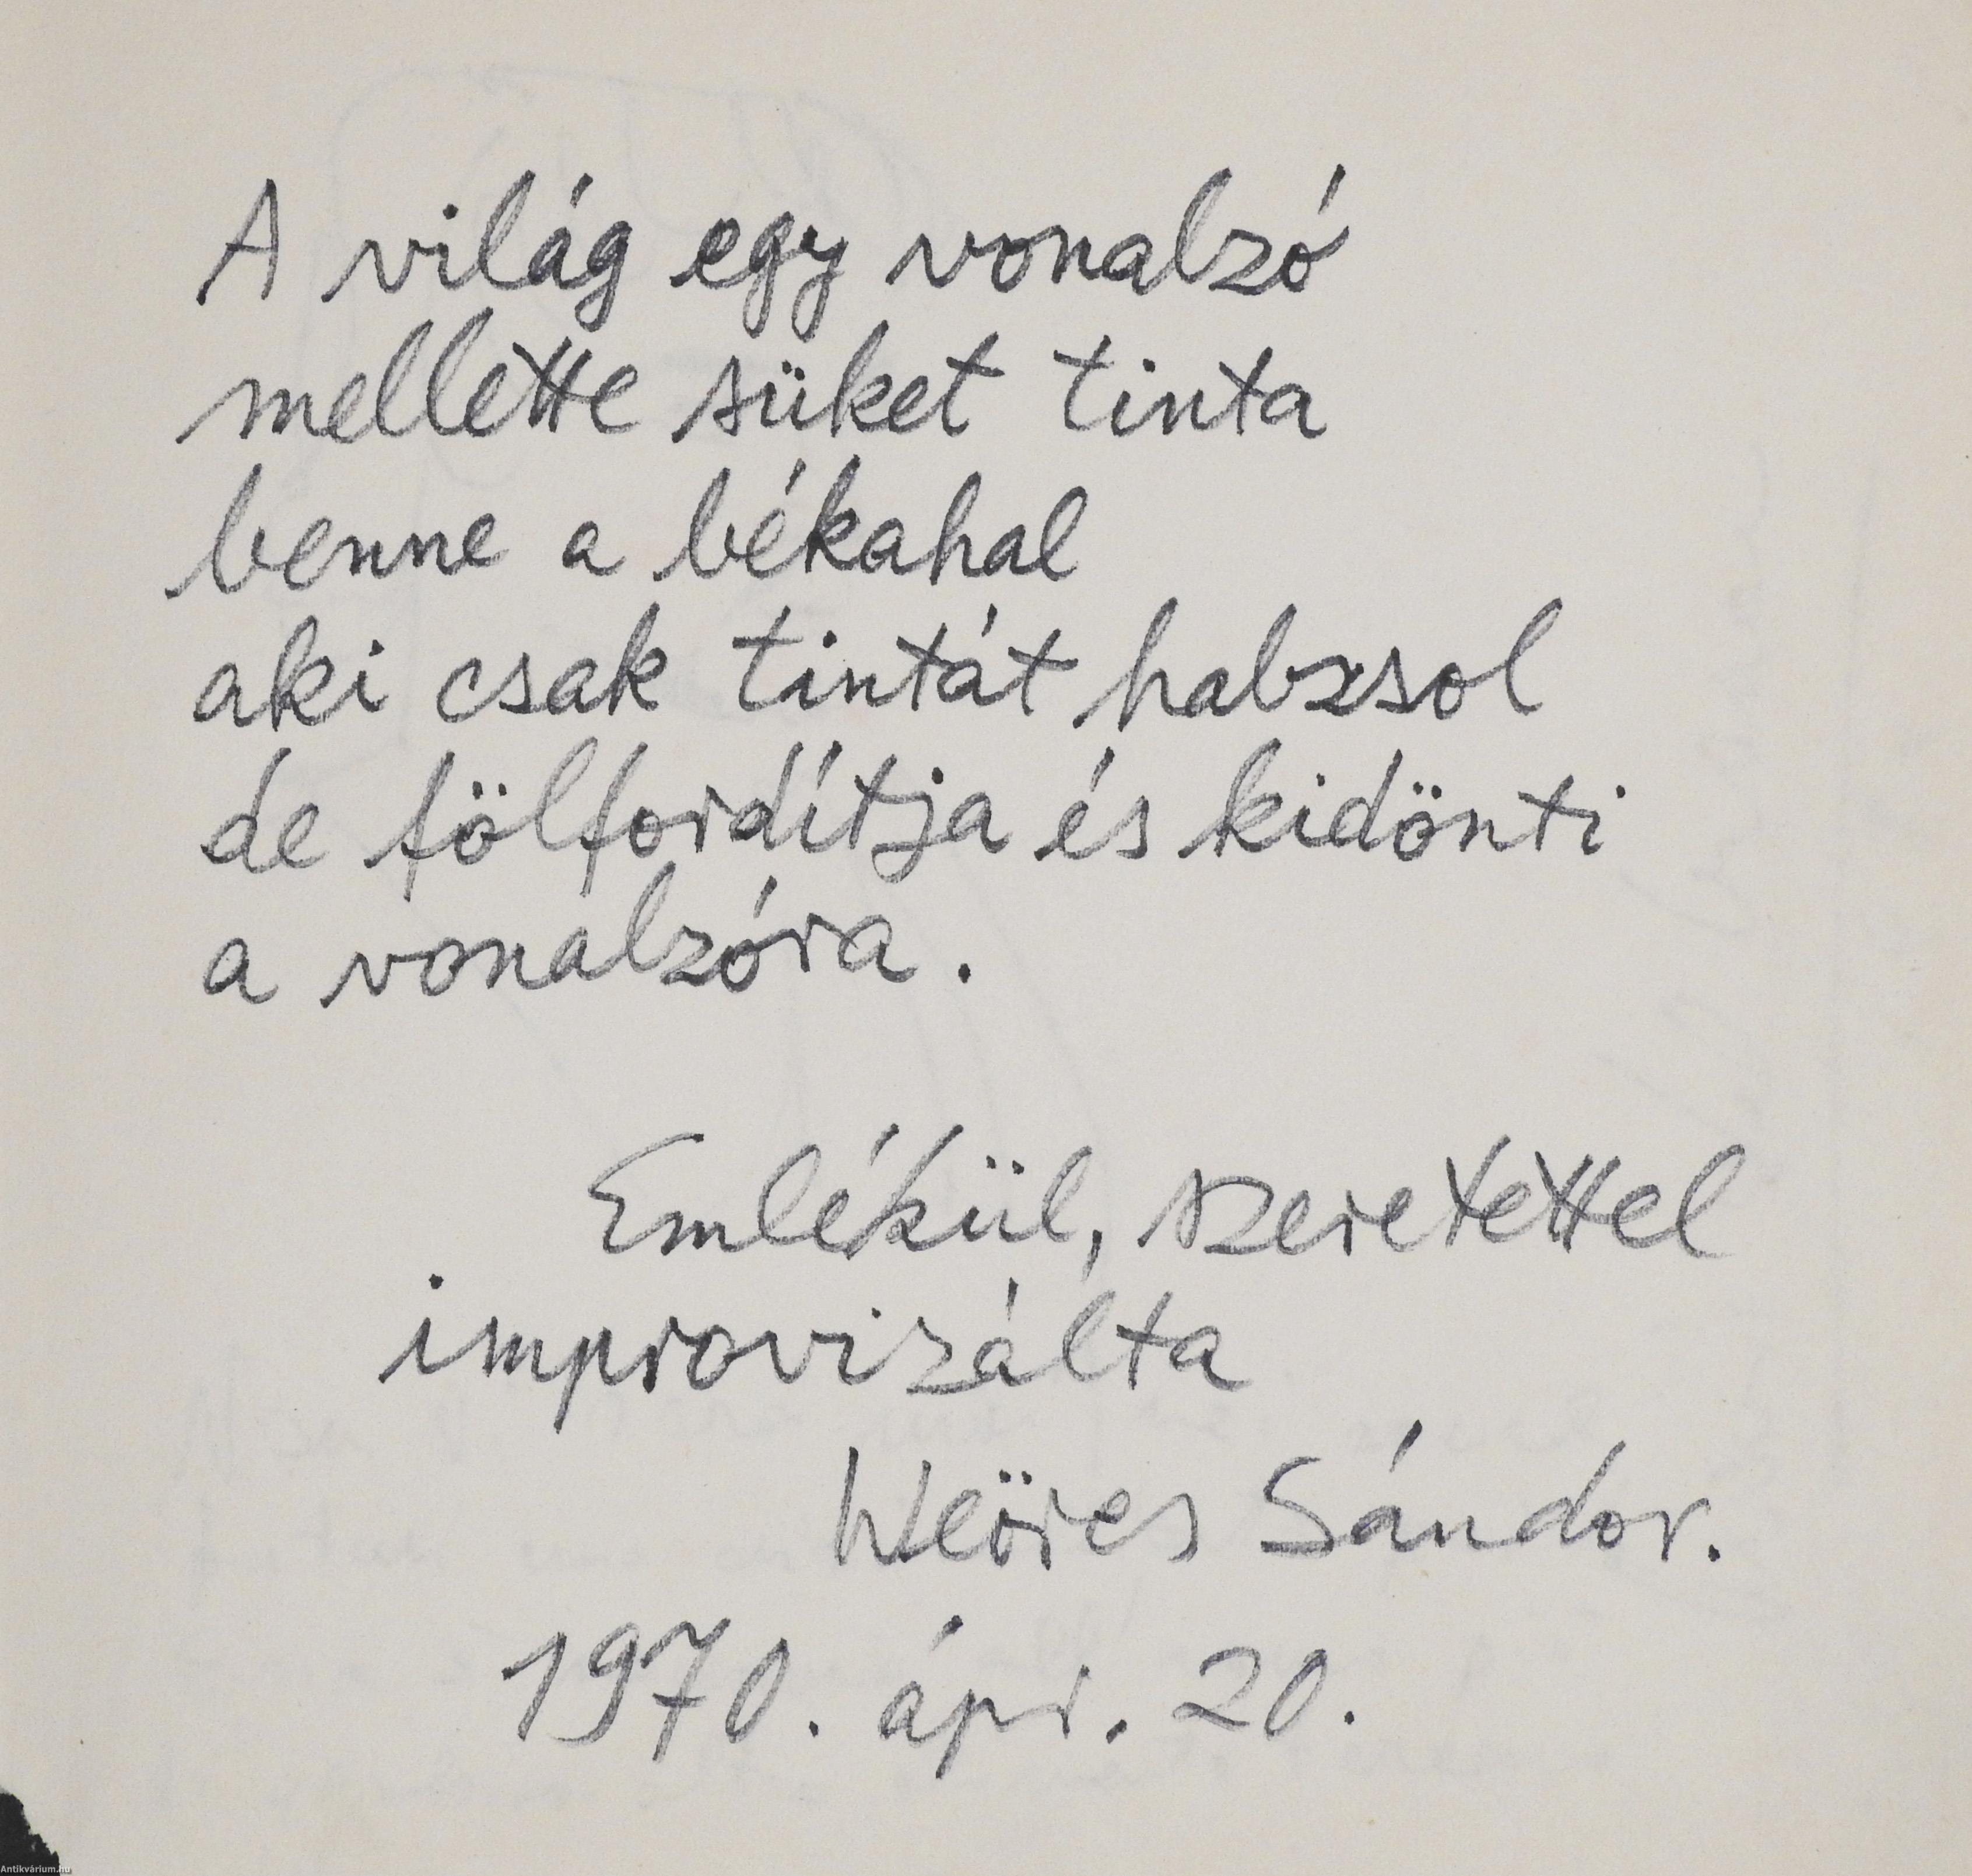 A világ egy vonalzó
mellette süket tinta
benne a békahal
aki csak tintát habzsol
de fölfordítja és kidönti
a vonalzóra.
Emlékül, szeretettel
improvizálta
Weöres Sándor.
1970. ápr. 20.
Antikvárium.hu